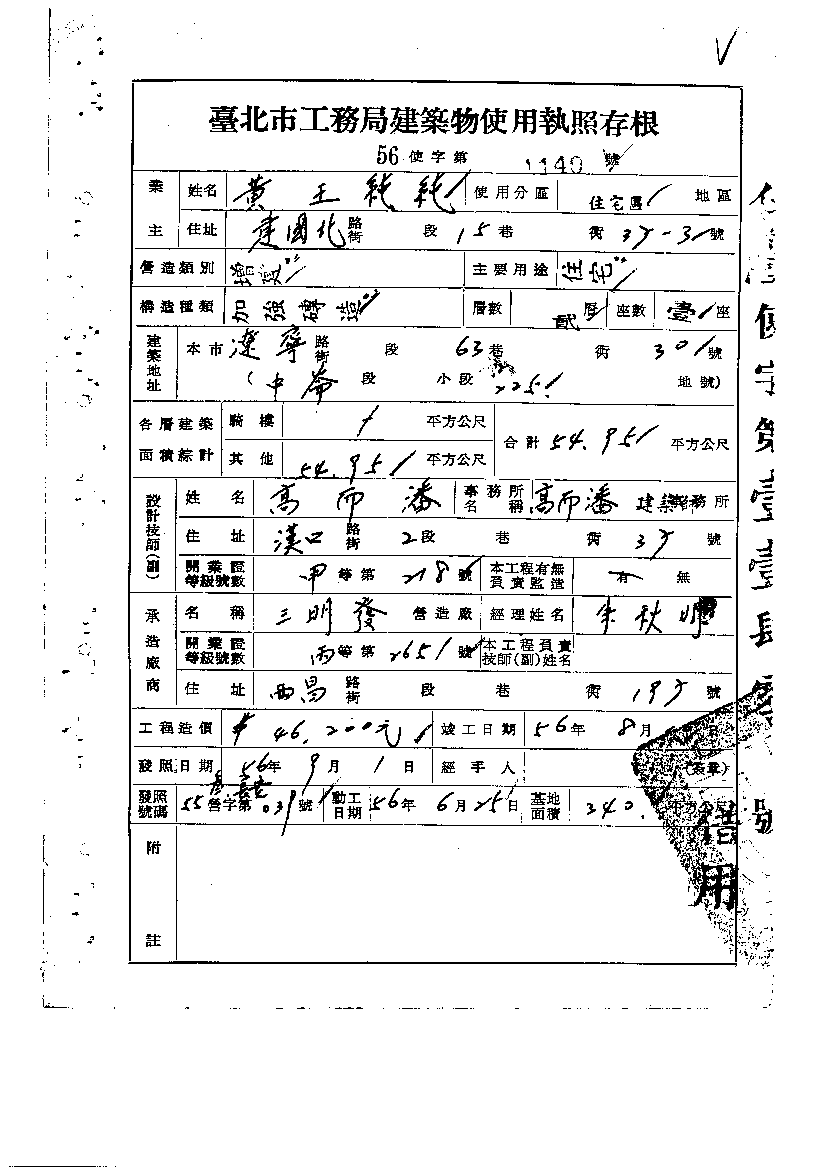 臺北市工務局建築物使用執照存根
56使字第1140號
業主 姓名 黃王純純 使用分區 住宅區 地區
住址 建國北路街 段 15巷 衖 37-3號
營造類別 增建 主要用途 住宅
構造種類 加強磚造 層數 貳層 座數 壹座
建築地址 本市遼寧路街 段 63巷 衖 30 號
(中崙段 小段 225 地號)
各層建築面積綜計 騎樓 / 平方公尺 合計 54.95 平方公尺
其他 54.95 平方公尺
設計技師(副) 姓名 高而潘 事務所名稱 高而潘建築師事務所
住址 漢口路街 2段 巷 衖 37 號
開業證等級號數 甲等第218號 本工程有無負責監造 有 無
承造廠商 名稱 三明發 營造廠 經理姓名 朱秋
開業證等級號數 丙等第2651號 本工程負責技師(副)姓名
住址 西昌路街 段 巷 衖 197 號
工程造價 $46,200元 竣工日期 56年8月
發照日期 56年9月1日 經手人 (簽章)
發照號碼 55營字第039號 動工日期 56年6月25日 基地面積 340. 平方公尺
附註
使字第壹壹 號
借用